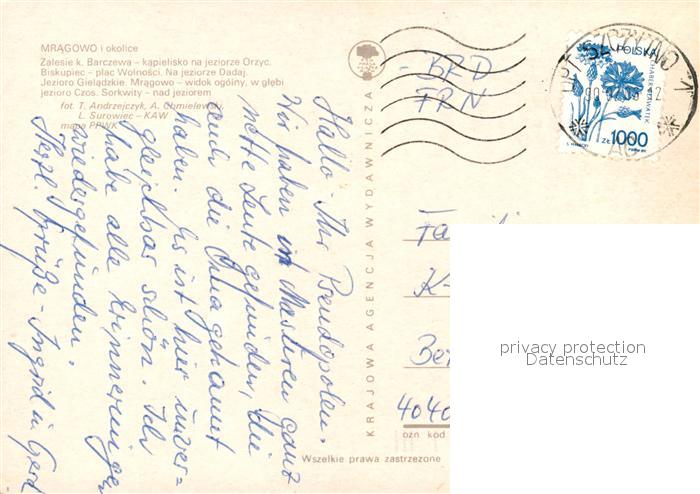 MRĄGOWO i okolice
Zalesie k. Barczewa – kąpielisko na jeziorze Orzyc.
Biskupiec – plac Wolności. Na jeziorze Dadaj.
Jezioro Gielądzkie. Mrągowo – widok ogólny, w głębi
jezioro Czos. Sorkwity – nad jeziorem
fot. T. Andrzejczyk, A. Chmielewski,
L. Surowiec – KAW
mapa PPWK
Hallo – Ihr Pseudopolen.
Wir haben in Masuren ganz
nette Leute gefunden, die
auch die Oma gekannt
haben. Es ist hier unver-
gleichbar schön. Ich
habe alle Erinnerungen
wiedergefunden.
Herzl. Grüße – Ingrid u. Gerd
KRAJOWA AGENCJA WYDAWNICZA
– BRD
FRN
POLSKA
CHABER BŁAWATEK
ZŁ 1000
Fa
K-
Be
4040
ozn kod
Wszelkie prawa zastrzeżone
privacy protection
Datenschutz